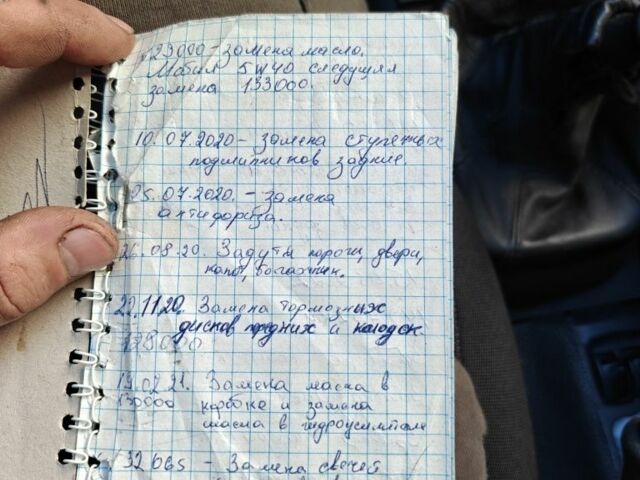 123000 - замена масла.
Мобил 5W40 следущая
замена 133000.
10.07.2020 - замена ступечных
подшипников задние.
25.07.2020. - замена
антифриза.
26.08.20. Задуты пороги, двери,
капот, багажник.
22.11.20. Замена тормозных
дисков предних и колодок.
128000
19.02.21. Замена масла в
130000 коробке и замена
масла в гидроусилителе
132065 - Замена свечей